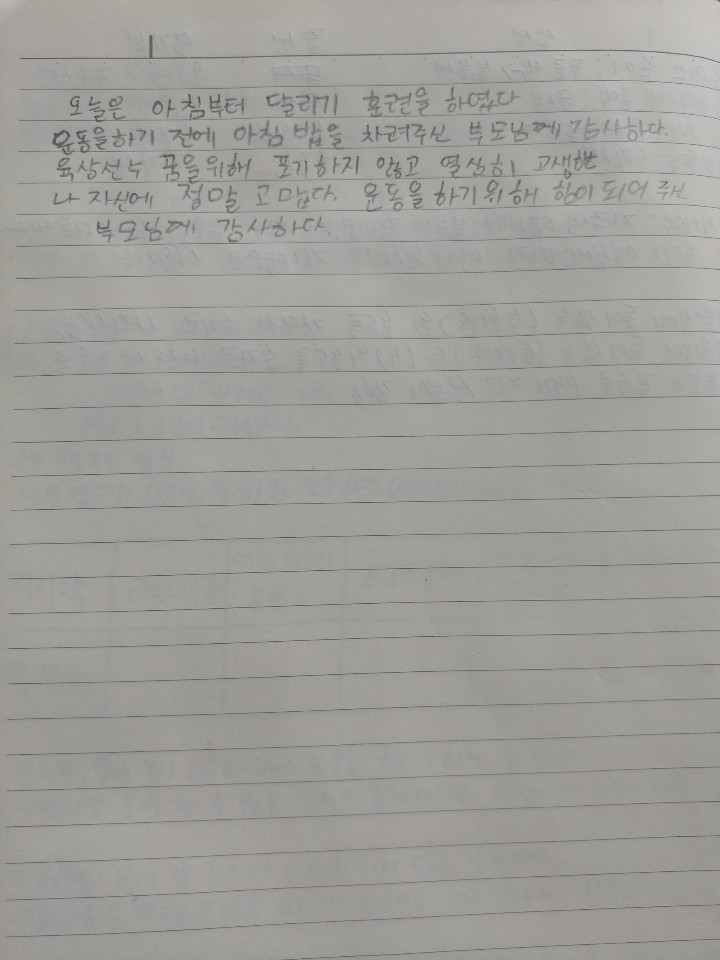 오늘은 아침부터 달리기 훈련을 하였다
운동을하기 전에 아침 밥을 차려주신 부모님께 감사하다.
육상선수 꿈을위해 포기하지 않고 열심히 고생한
나 자신에 정말 고맙다. 운동을 하기위해 힘이 되어 주신
부모님께 감사하다.